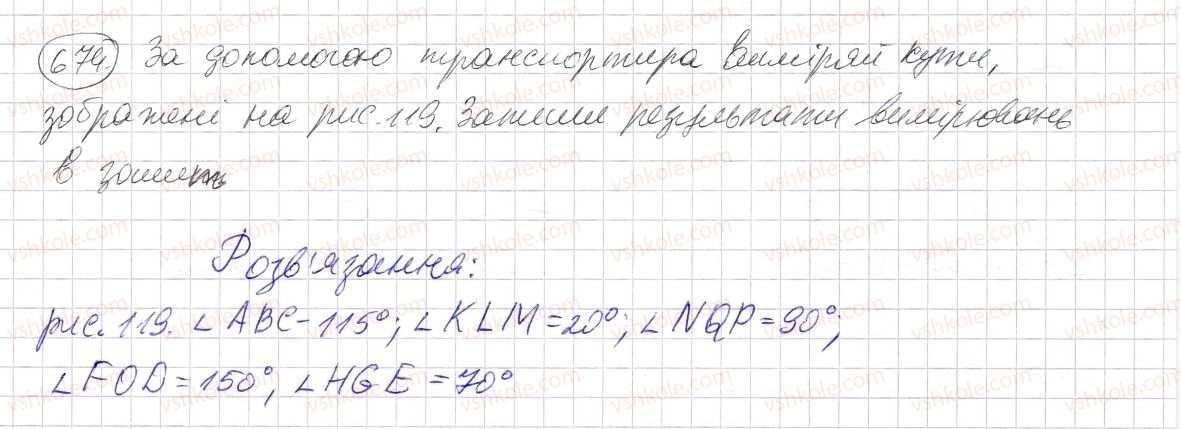 674. За допомогою транспортира виміряй кути,
зображені на рис. 119. Запиши результати вимірювань
в зошит
Розв'язання:
рис. 119. ∠ABC - 115°; ∠KLM = 20°; ∠NQP = 90°;
∠FOD = 150°, ∠HGE = 70°